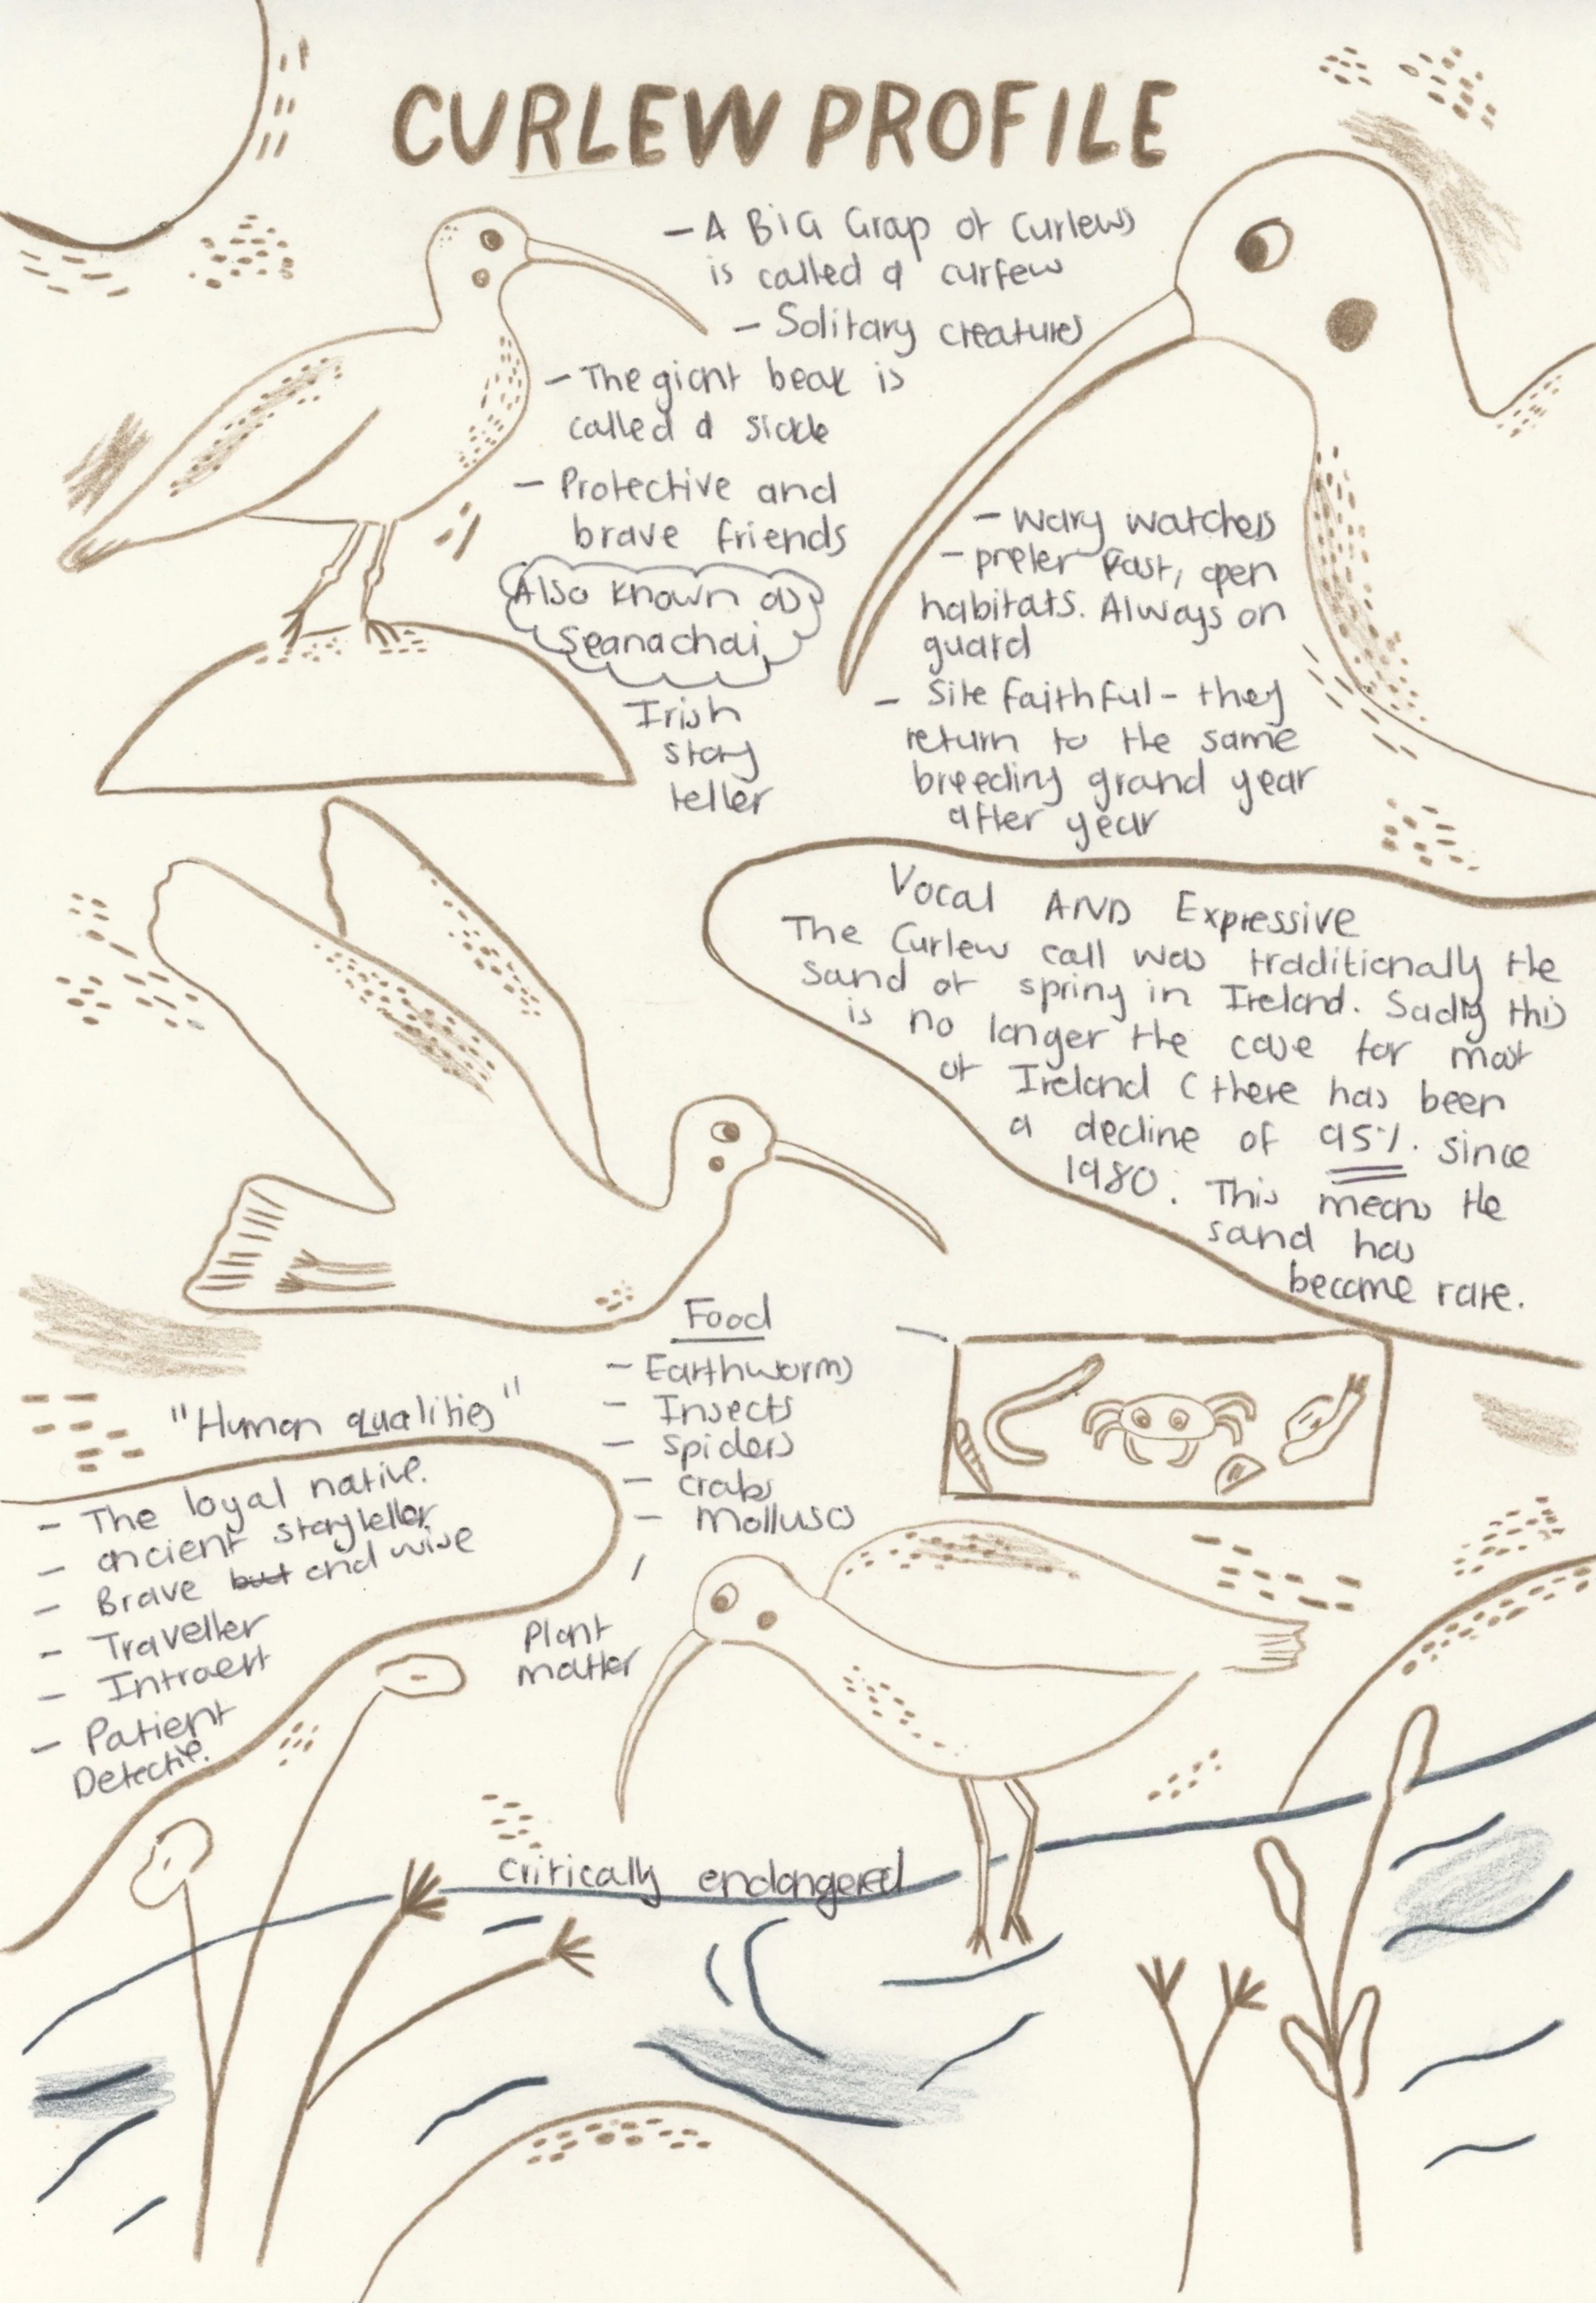 CURLEW PROFILE
- A BIG Group of Curlews
is called a curfew
- Solitary creatures
- The giant beak is
called a sickle
- Protective and
brave friends
Also known as
Seanachai
Irish
story
teller
- wary watchers
- prefer vast, open
habitats. Always on
guard
- Site faithful - they
return to the same
breeding ground year
after year
Vocal AND Expressive
The Curlew call was traditionally the
sound of spring in Ireland. Sadly this
is no longer the case for most
of Ireland (there has been
a decline of 95% since
1980. This means the
sound has
become rare.
Food
- Earthworms
- Insects
- spiders
- crabs
- molluscs
Plant
matter
"Human qualities"
- The loyal native.
- ancient storyteller
- Brave but and wise
- Traveller
- Introvert
- Patient
Detective.
critically endangered